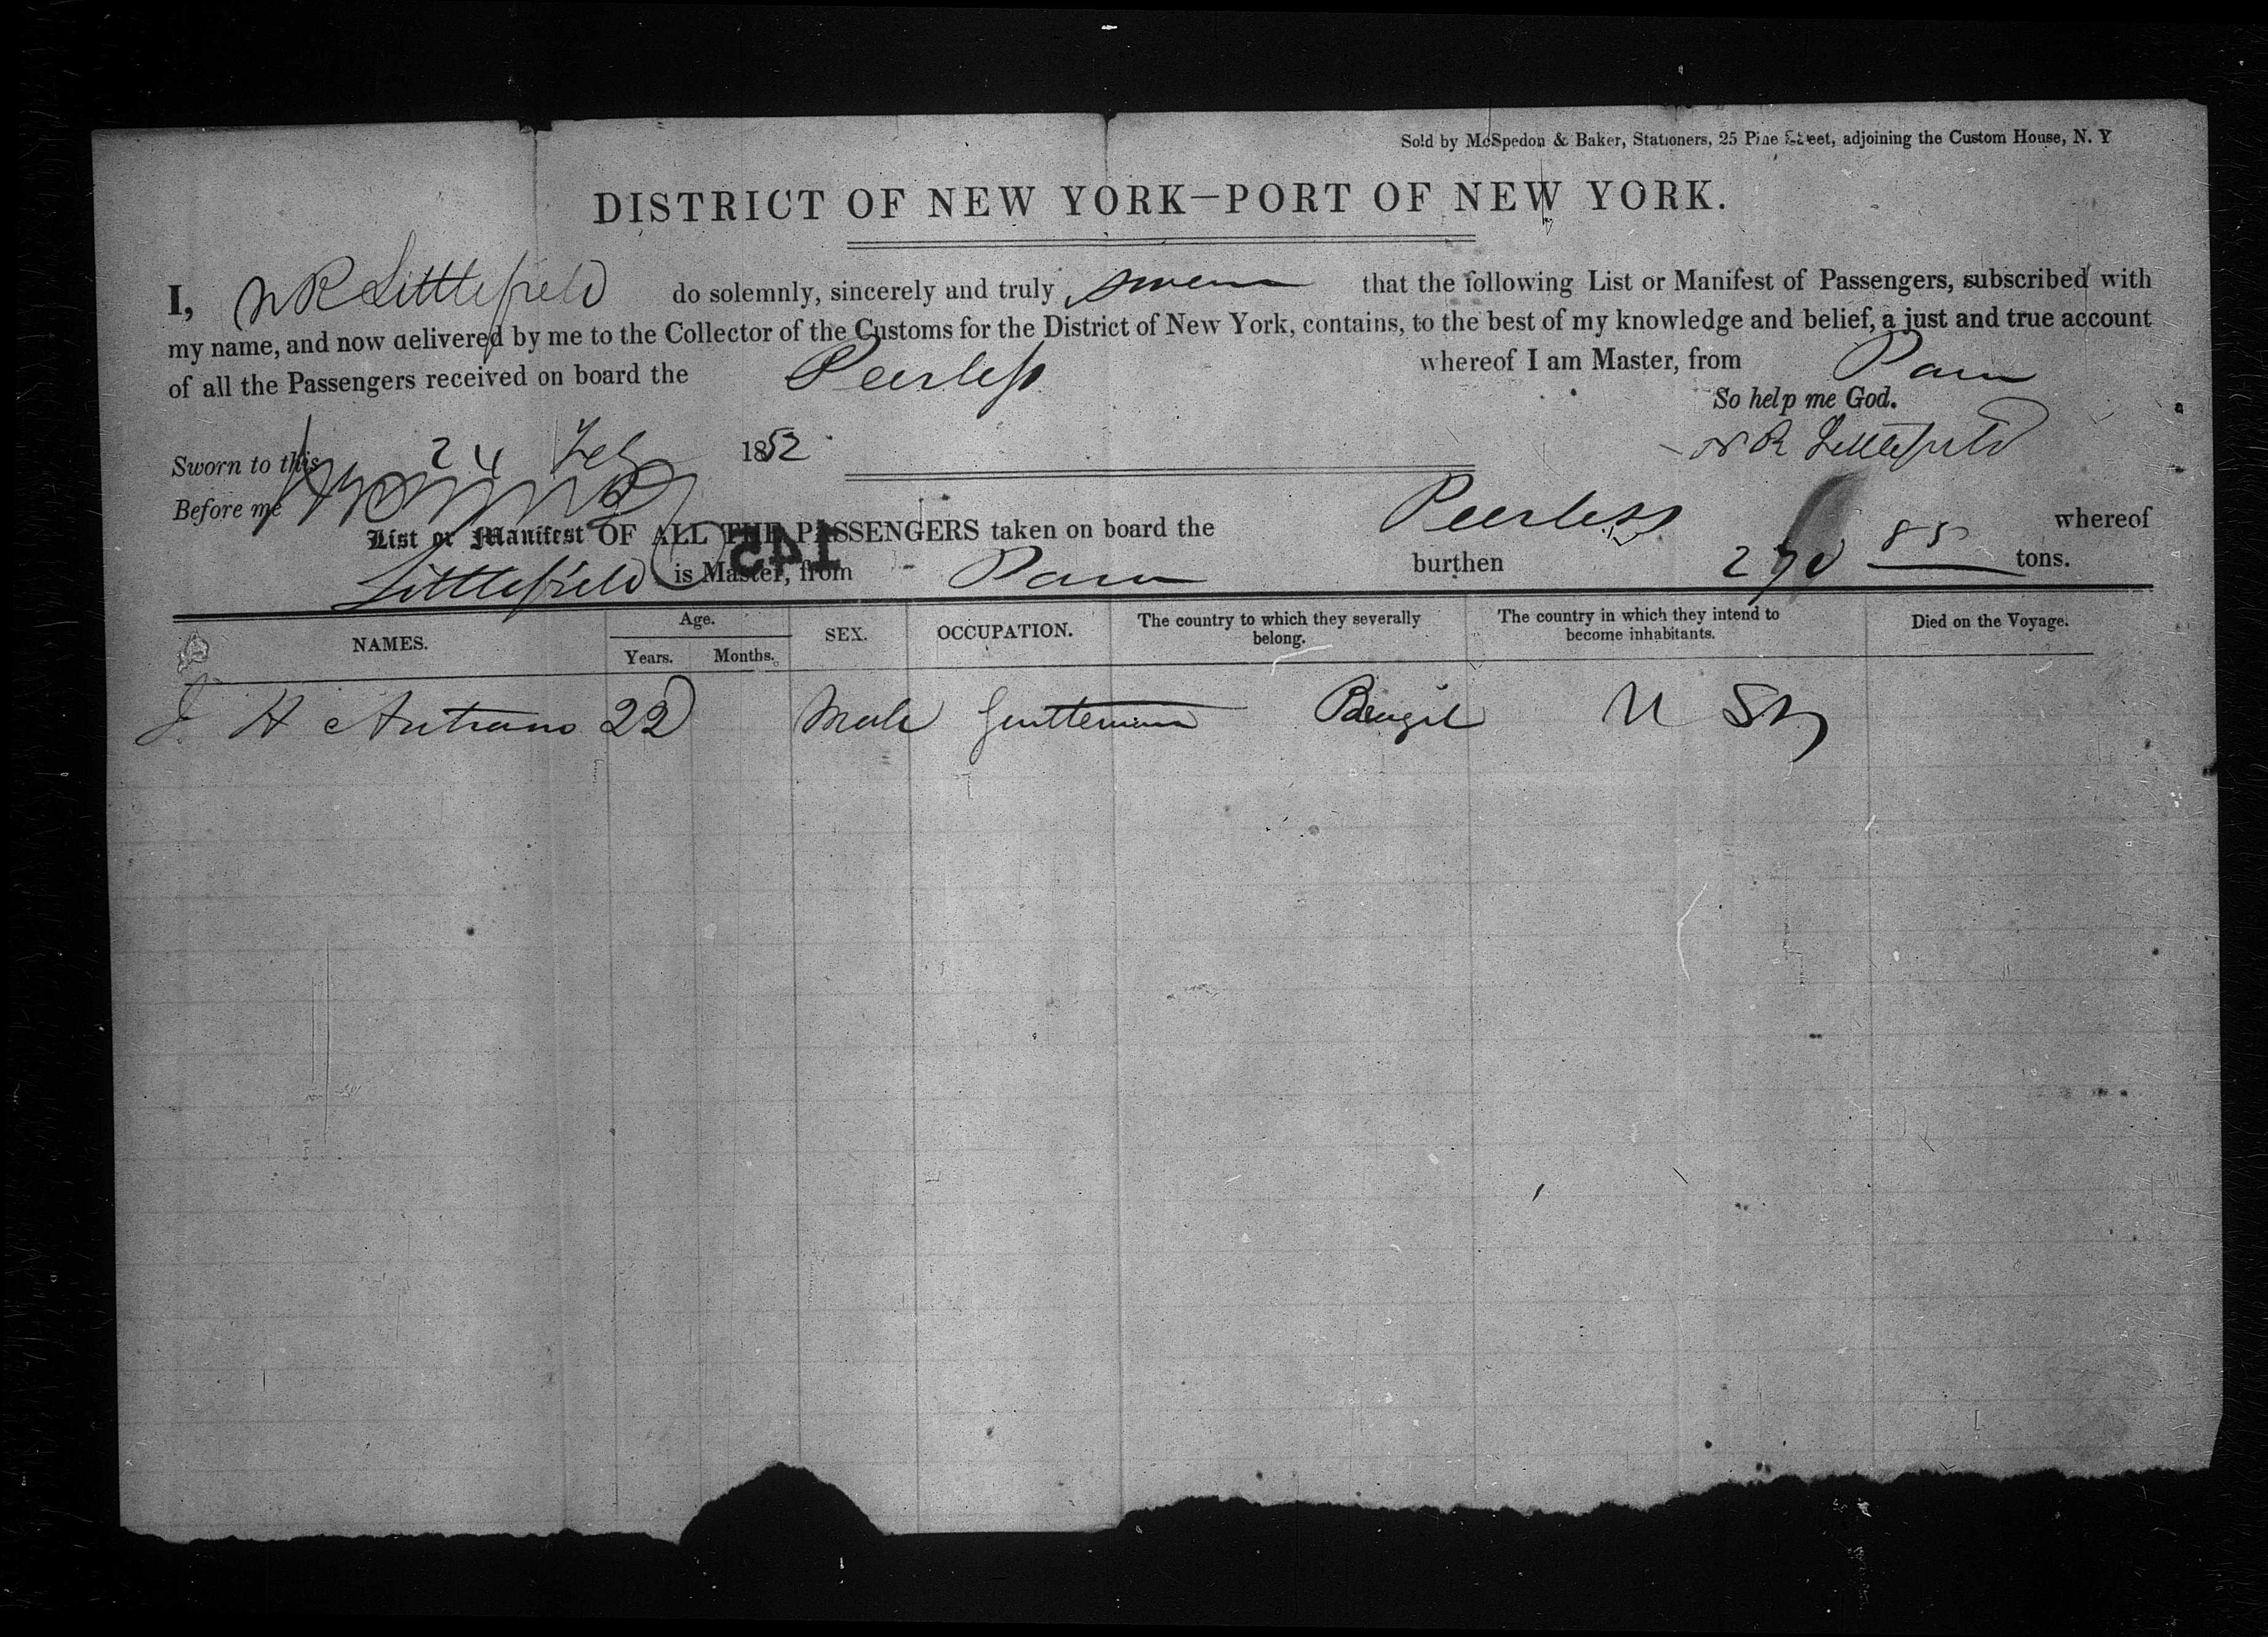 Sold by McSpedon & Baker, Stationers, 25 Pine Street, adjoining the Custom House, N. Y
DISTRICT OF NEW YORK—PORT OF NEW YORK.
I, N R Littlefield do solemnly, sincerely and truly swear that the following List or Manifest of Passengers, subscribed with
my name, and now delivered by me to the Collector of the Customs for the District of New York, contains, to the best of my knowledge and belief, a just and true account
of all the Passengers received on board the Peerless whereof I am Master, from Para
So help me God.
Sworn to this 24 Feb 1852 N R Littlefield
Before me
List or Manifest OF ALL THE PASSENGERS taken on board the Peerless whereof
Littlefield is Master, from Para burthen 270 85 tons.
145
NAMES. Age. Years. Months. SEX. OCCUPATION. The country to which they severally belong. The country in which they intend to become inhabitants. Died on the Voyage.
J H 22 Male Gentleman Brazil U S